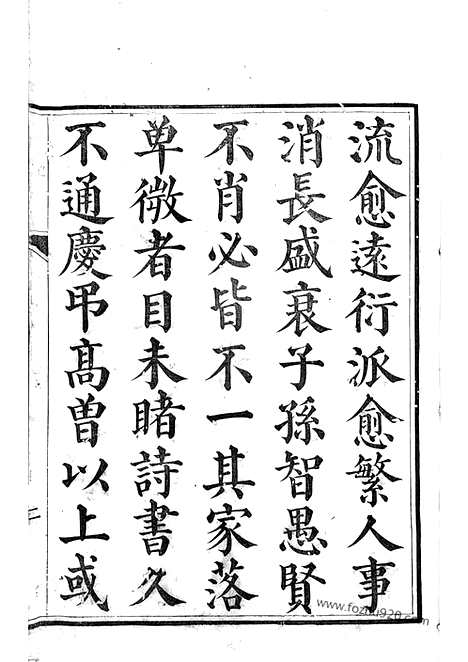 流愈遠衍派愈繁人事
消長盛衰子孫智愚賢
不肖必皆不一其家落
卑微者目未睹詩書久
不通慶弔高曾以上或
二
www.fozhu920.com